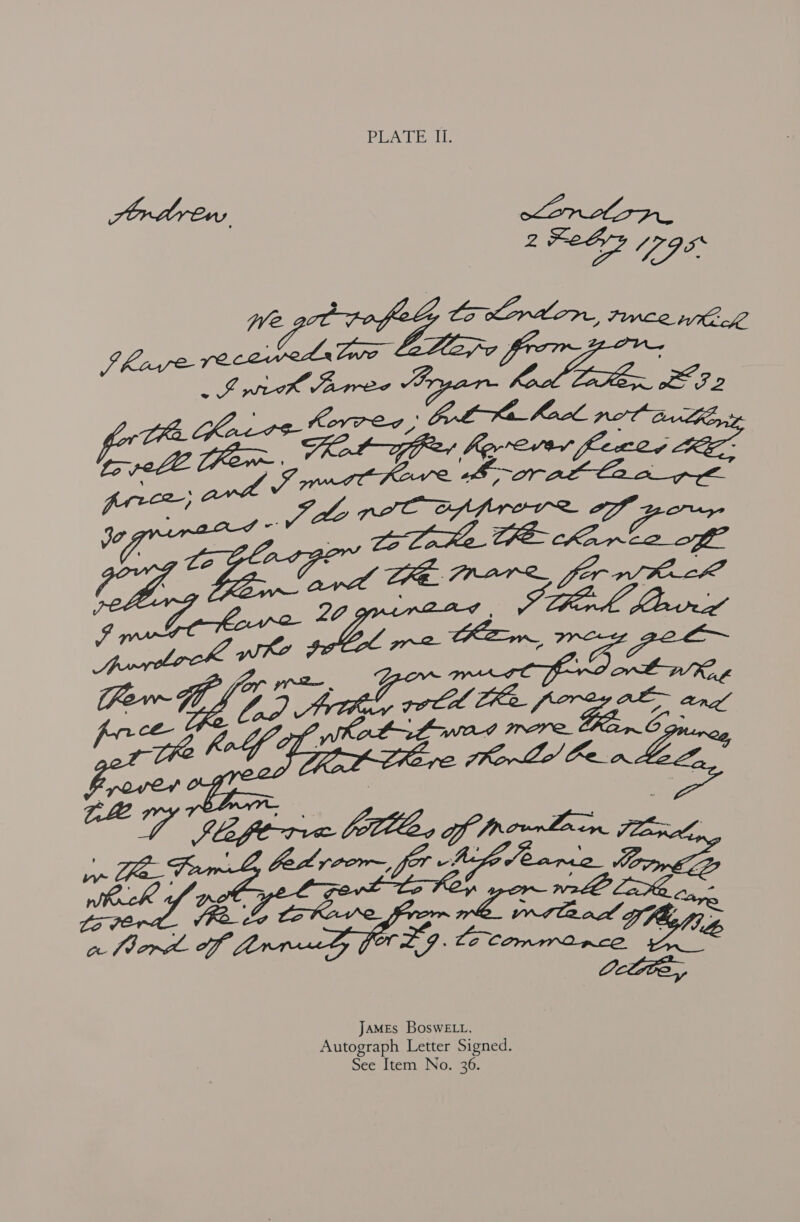 PLATE II.
Andrew, London
2 Febry 1795.
We got safely to London, since which
I have received two letters from you.
I wish James Bryan had taken £32
for the Chaise horses; but he had not authority
to sell them. That offer however fixes the
price; and I must have it, or at least
30 guineas. I do not approve of your
going to Glasgow to take the chance of
selling them and the mare, for which
I must have 20 guineas. I think David
Murdoch who sold me them, may get
them off for me. You must find out what
price the lad Arthur sold the poney at, and
get the half of what it was more than 6 guineas,
Graves agreed that there should be a delay
till my return.
I left six bottles of Mountain standing
in the Family bedroom, for Miss Jeanie
which if not yet sent to her you will take care
to send. She is to have from me instead of
a Bond of Annuity for £9. to commence in
October,
JAMES BOSWELL.
Autograph Letter Signed.
See Item No. 36.